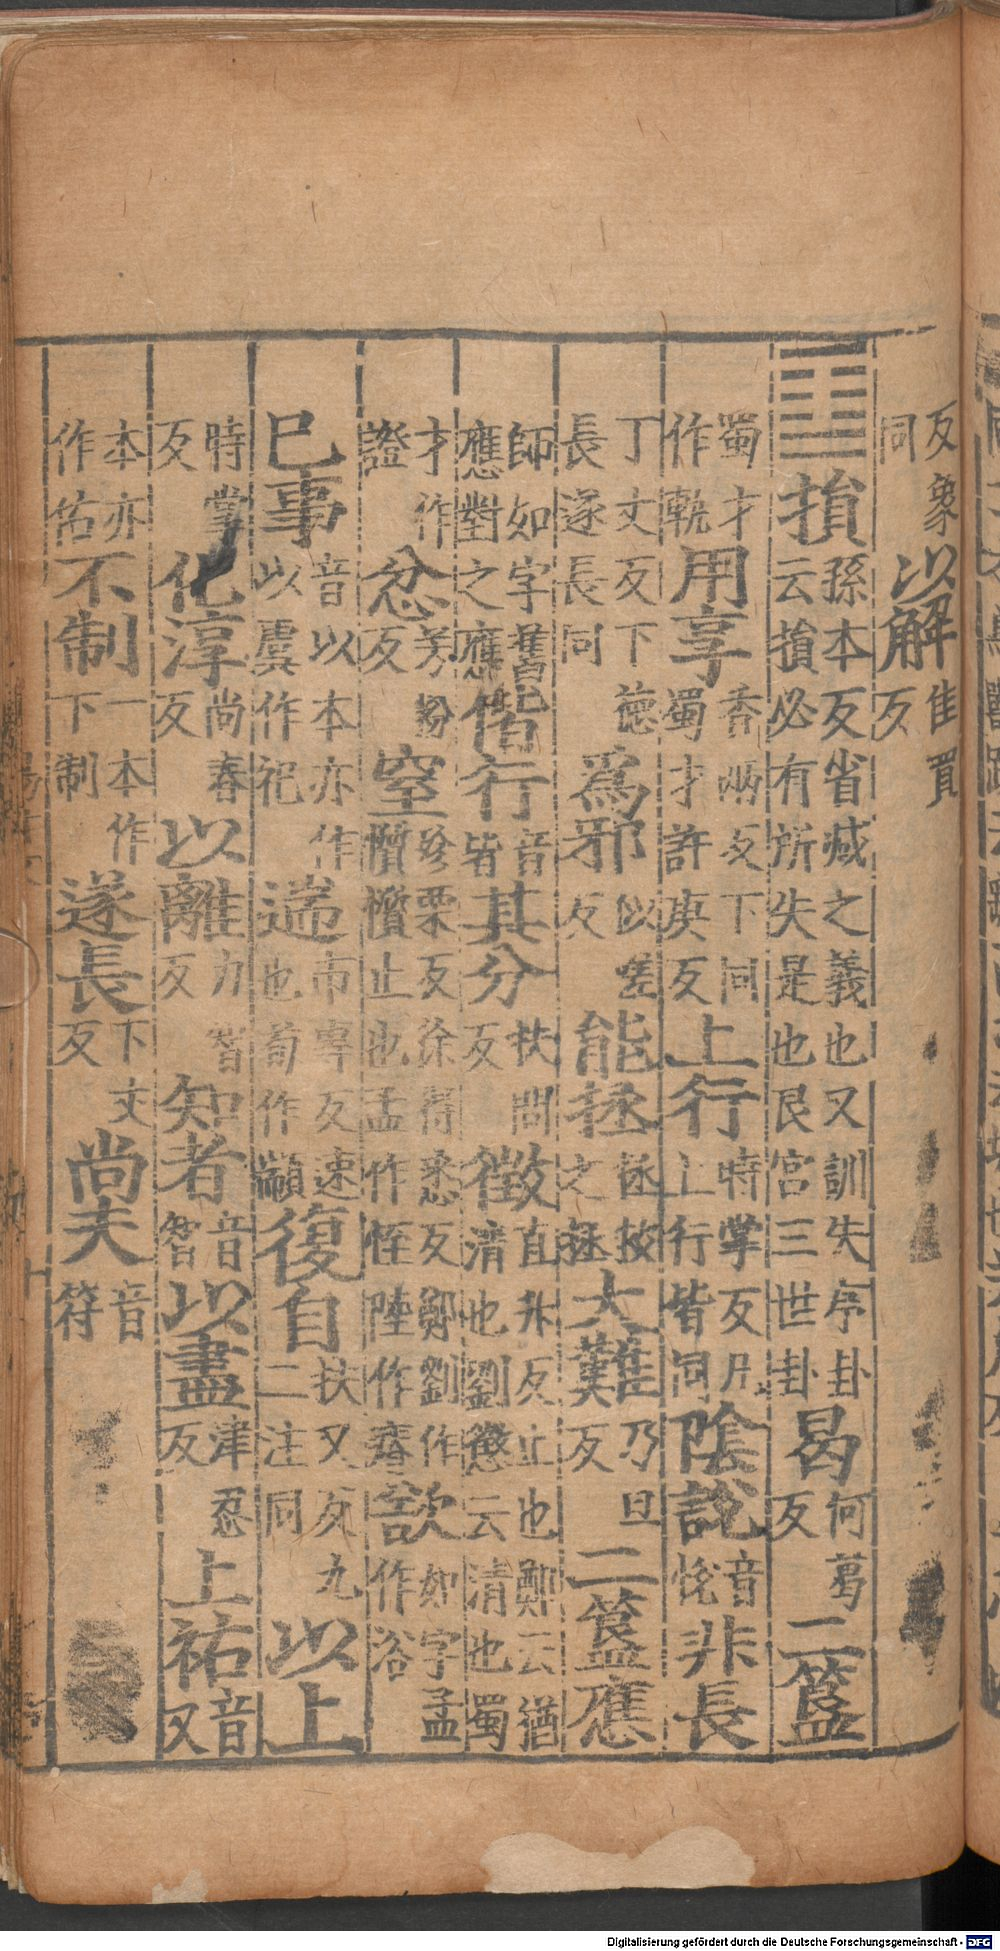 反象同以解佳買反
䷨損孫本反省減之義也又訓失序卦云損必有所失是也艮宮三世卦曷何葛反二簋
蜀才作軌用享香兩反下同蜀才許庚反上行時掌反凡上行皆同陰說音悅非長
丁丈反下德長遂長同爲邪以嗟反能拯拯救之拯大難乃旦反二簋應
師如字舊應對之應偕行音皆其分扶問反徵直升反止也鄭云猶清也劉懲云清也蜀
才作證忿芳粉反窒珍栗反徐得悉反鄭劉作懫懫止也孟作恎陸作𡪢欲如字孟作谷
巳事音以本亦作以虞作祀遄市專反速也荀作顓復自扶又反二注同九以上
時掌反化淳尚春反以離力智反知者音智以盡津忍反上祐音又
本亦作佑不制一本作下制遂長下丈反尚夫音符
Digitalisierung gefördert durch die Deutsche Forschungsgemeinschaft - DFG